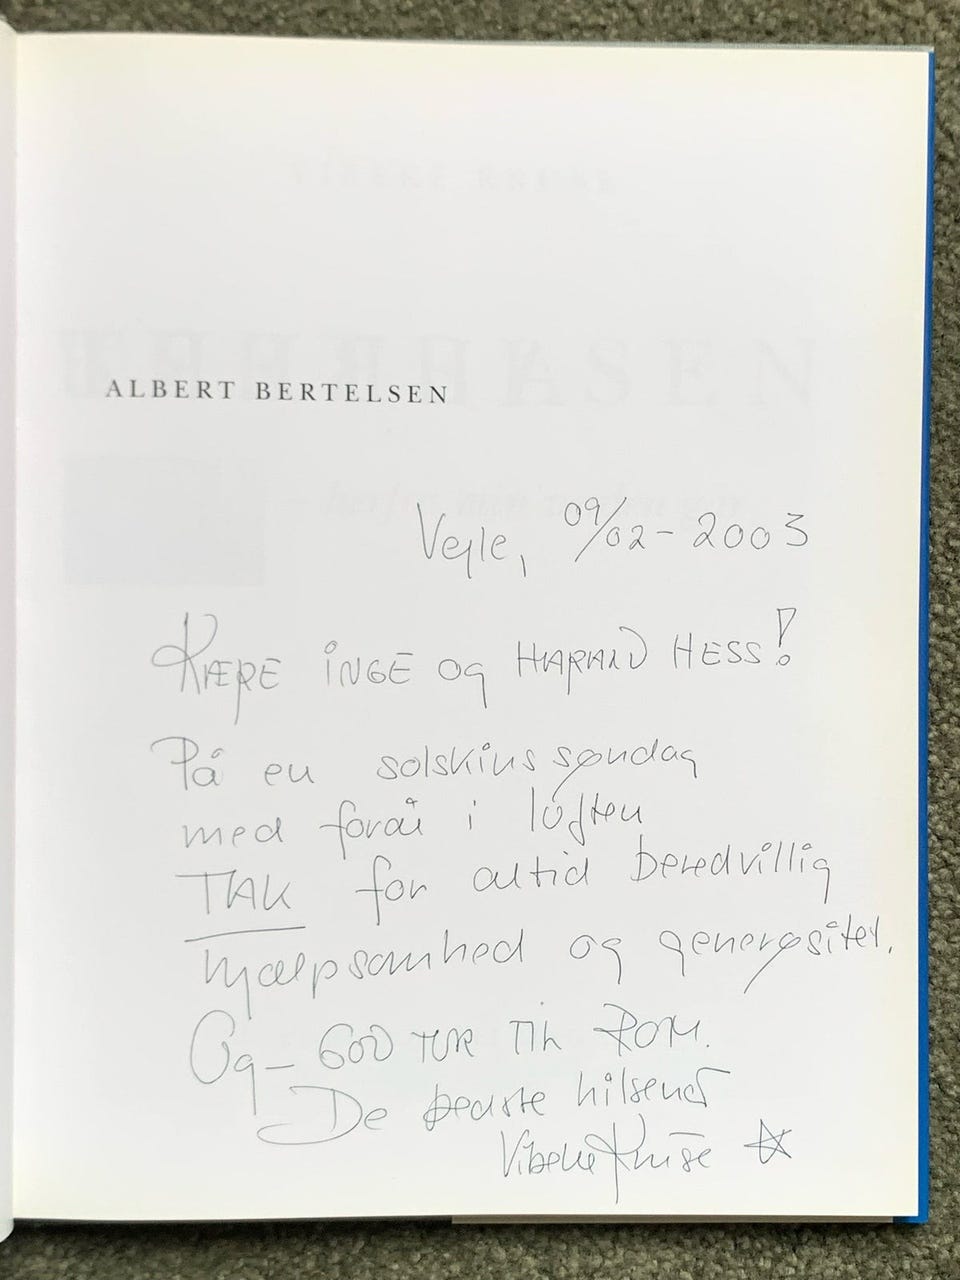 ALBERT BERTELSEN
Vejle, 09/02-2003
KÆRE INGE og HARALD HESS!
På en solskinssøndag
med forår i luften
TAK for altid beredvillig
hjælpsomhed og generøsitet.
Og - GOD TUR TIL ROM.
De bedste hilsener
Vibeke Kruse